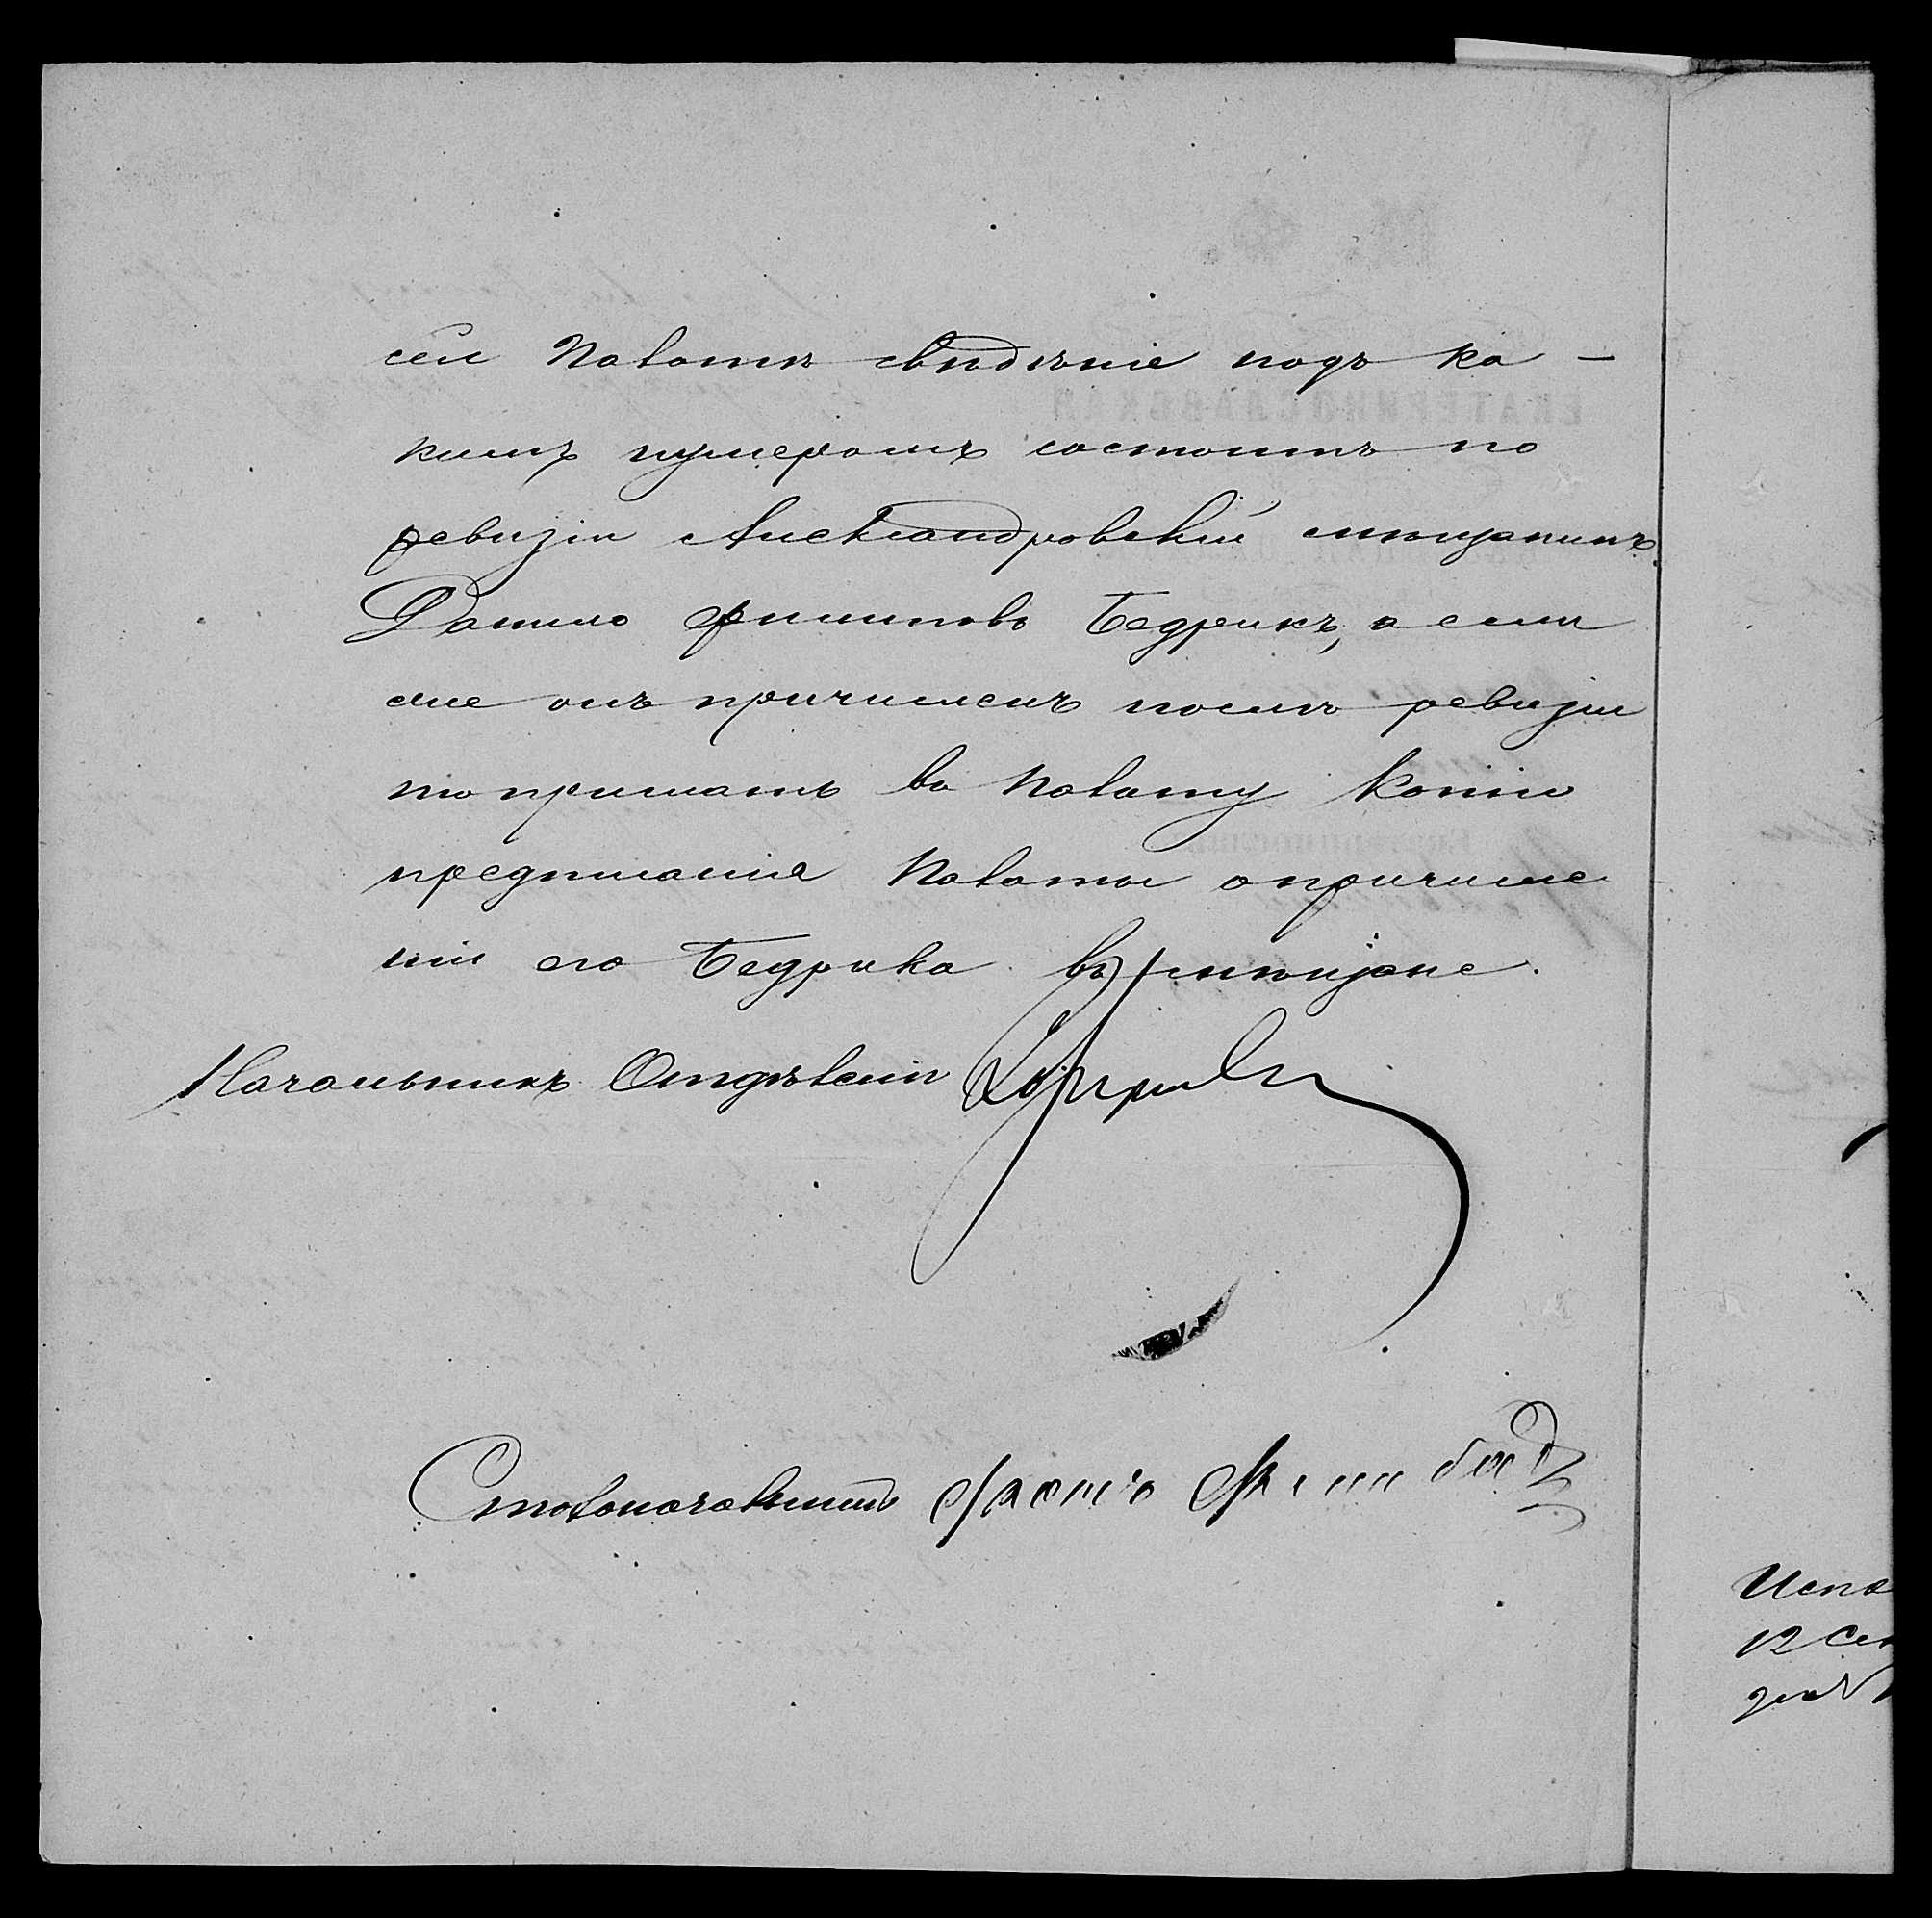 сей Палатѣ свѣдѣніе подъ ка-
кимъ нумеромъ состоитъ по
ревизіи Александровскій мѣщанинъ
Данило Филиповъ Бедрикъ, а если
же онъ причисленъ послѣ ревизіи
то прислать въ Палату копію
предписанія Палаты о причисле
ніи его Бедрика въ мѣщане.
Начальникъ Отдѣленія
Столоначальникъ
ЕКАТЕРИНОСЛАВСКАЯ
Испо
12 Сен